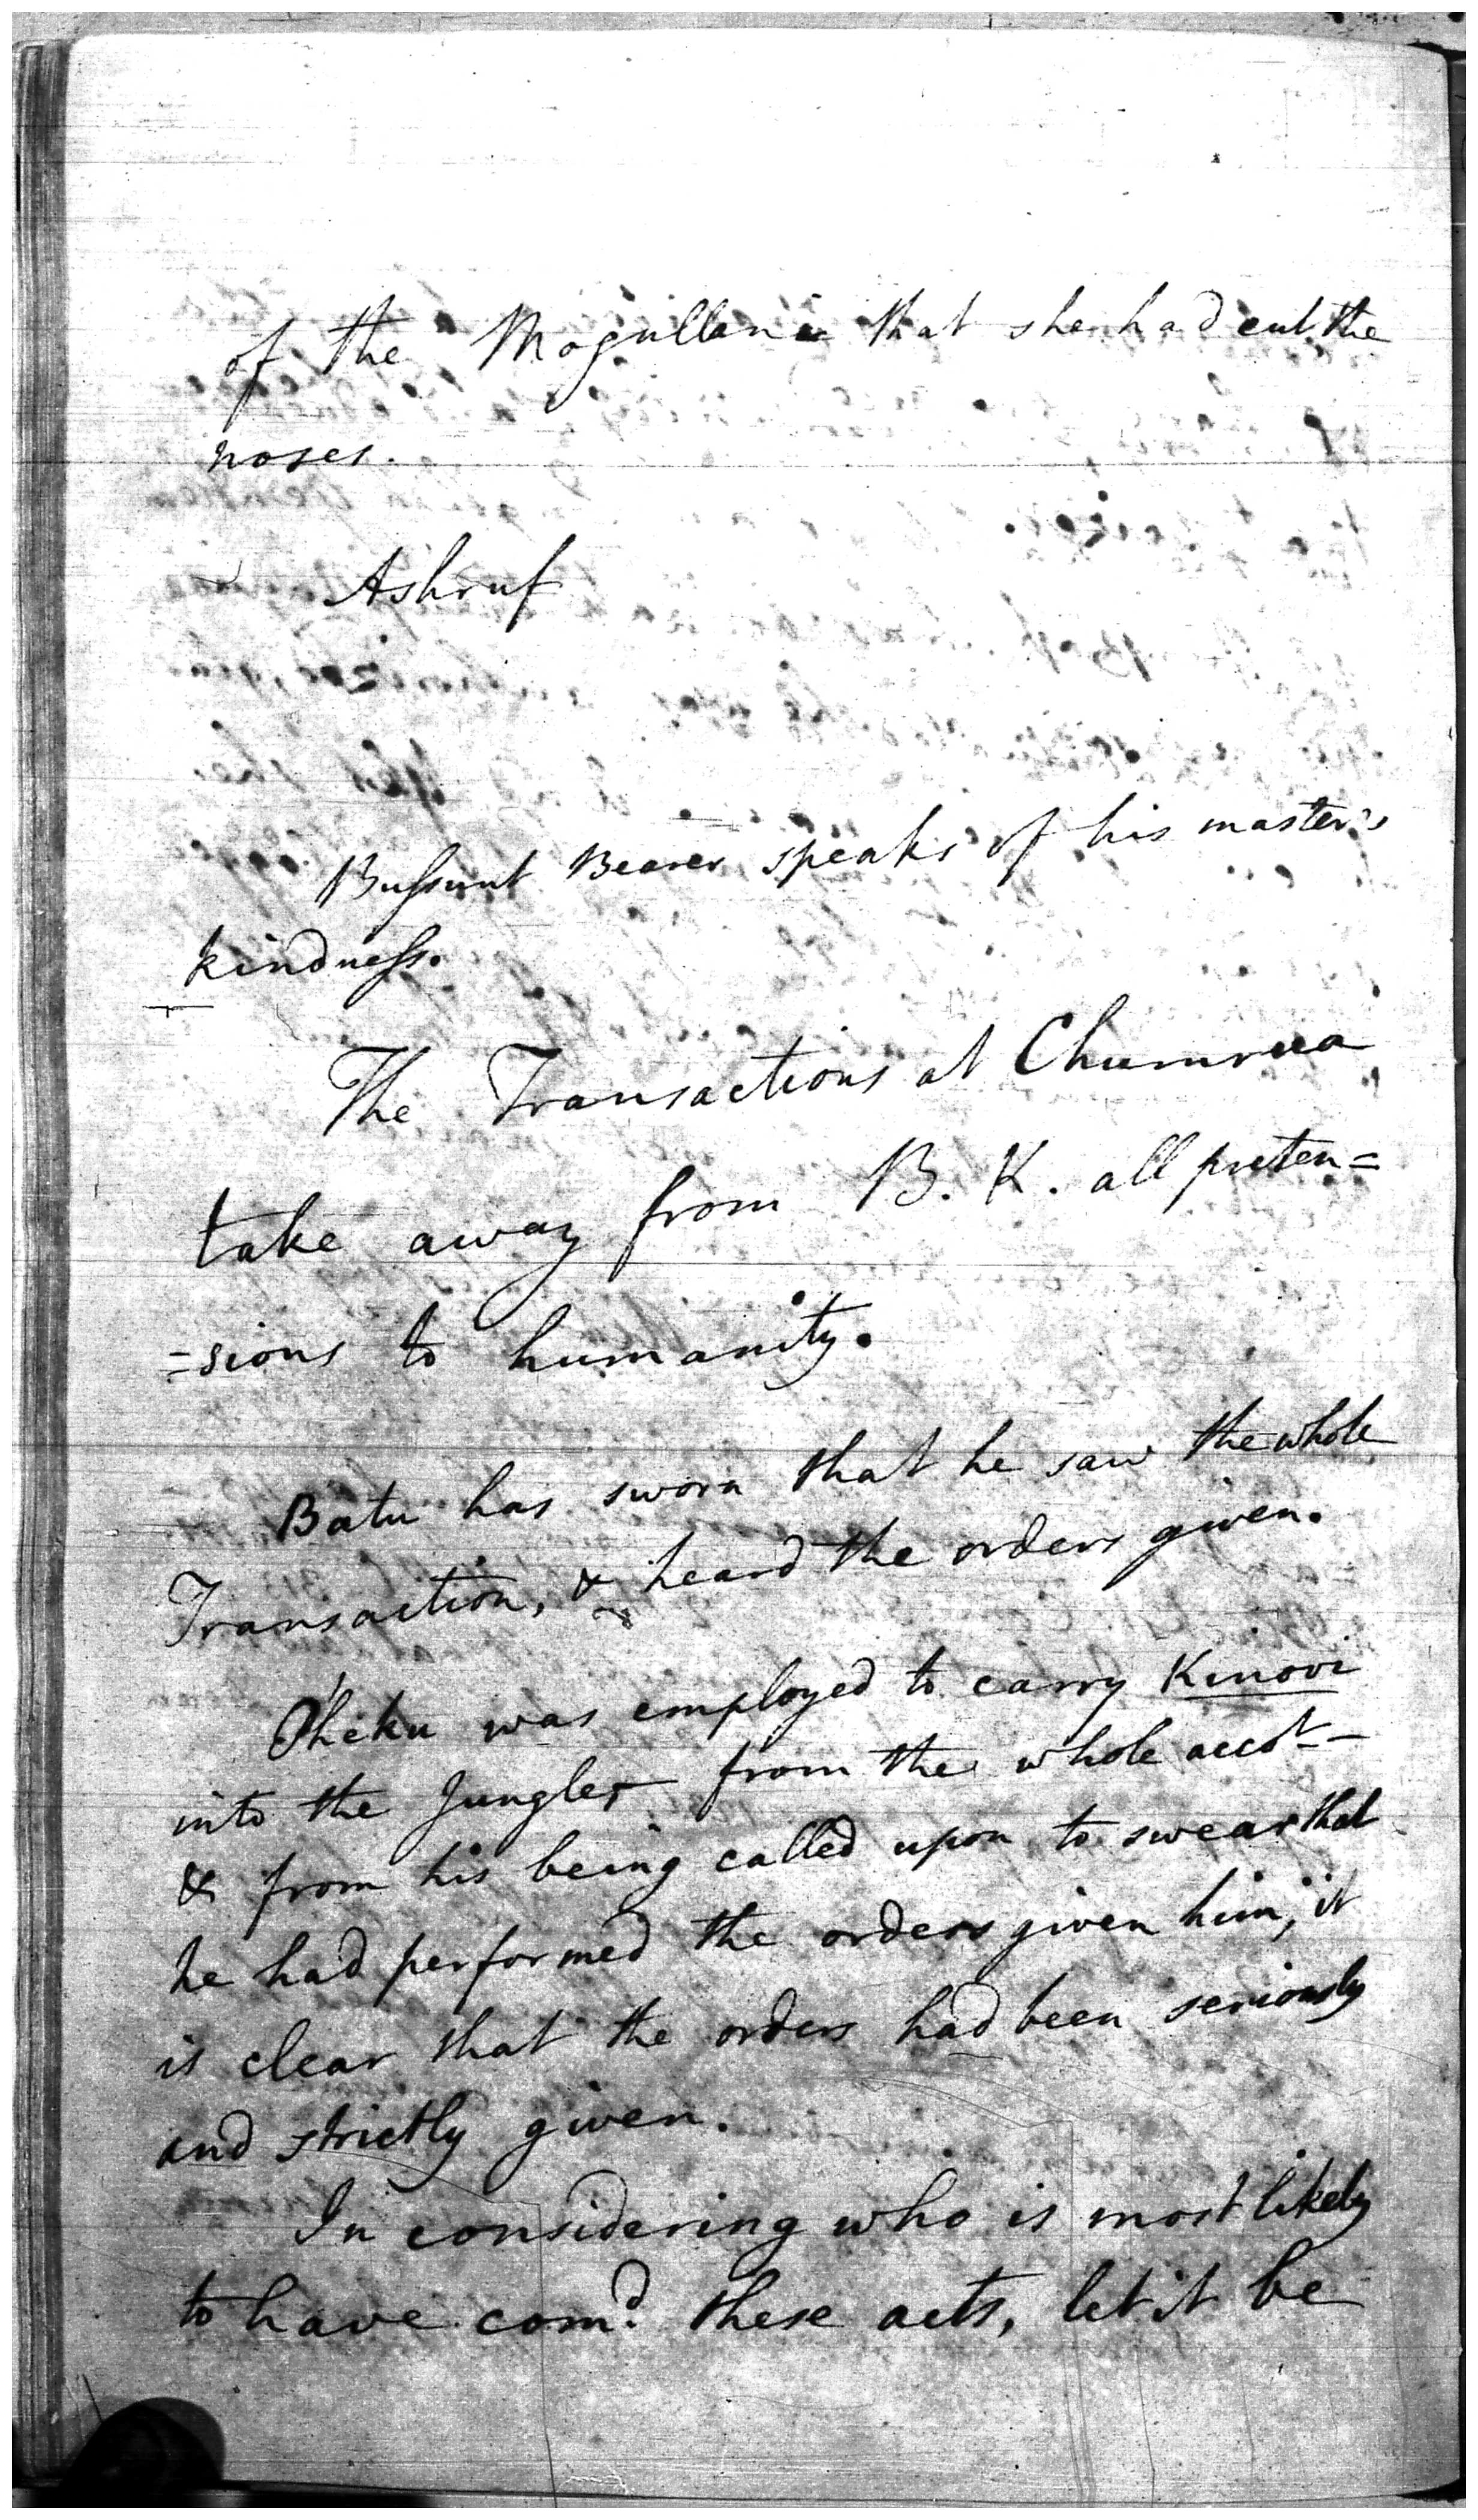 of the Mogullani that she had cut the
noses.
Ashruf
Bussunt Bearer speaks of his master's
kindness.
The Transactions at Chumrua
take away from B. K. all preten=
=sions to humanity.
Batu has sworn that he saw the whole
Transaction, & heard the orders given.
Pheku was employed to carry Kinovi
into the Jungles from the whole acct-
& from his being called upon to swear that
he had performed the orders given him, it
is clear that the orders had been seriously
and strictly given.
In considering who is most likely
to have comd. these acts, let it be